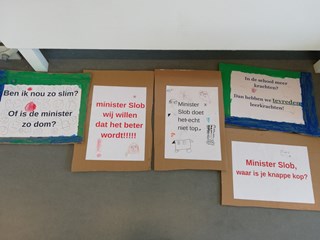 Ben ik nou zo slim?
Of is de minister
zo dom?
minister Slob
wij willen
dat het beter
wordt!!!!!
Minister
Slob doet
het echt
niet top
In de school meer
krachten?
Dan hebben we tevreden
leerkrachten!
Minister Slob,
waar is je knappe kop?